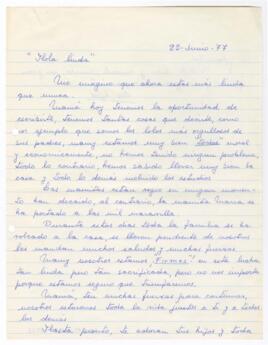 22-Junio-77
"Hola linda"
Me imagino que ahora estas más linda
que nunca.
Mamá hoy tenemos la oportunidad de
escribirte, tenemos tantas cosas que decirte, como
por ejemplo que somos los lolos más orgullosos de
sus padres, mamy estamos muy bien todos moral
y economicamente, no hemos tenido ningun problema,
todo lo contrario, hemos sabido llevar muy bien
la casa y todo lo demás incluido los estudios
Las mamitas estan aqui en ningun momen-
to han decaido, al contrario, la mamita Maria se
ha portado a las mil maravilla
Durante estos dias toda la familia se ha
volcado a la casa, se llevan pendiente de nosotros
les mandan muchos saludos y muchas fuerzas
Mamy nosotros estamos "Firmes" en esta lucha
tan linda pero tan sacrificada, pero no nos importa
porque estamos seguro que triunfaremos
Mamá, ten muchas fuerzas para continuar,
nosotros estaremos toda la vida juntos a ti y a todos
los demás
Hasta pronto, te adoran tus hijos y toda